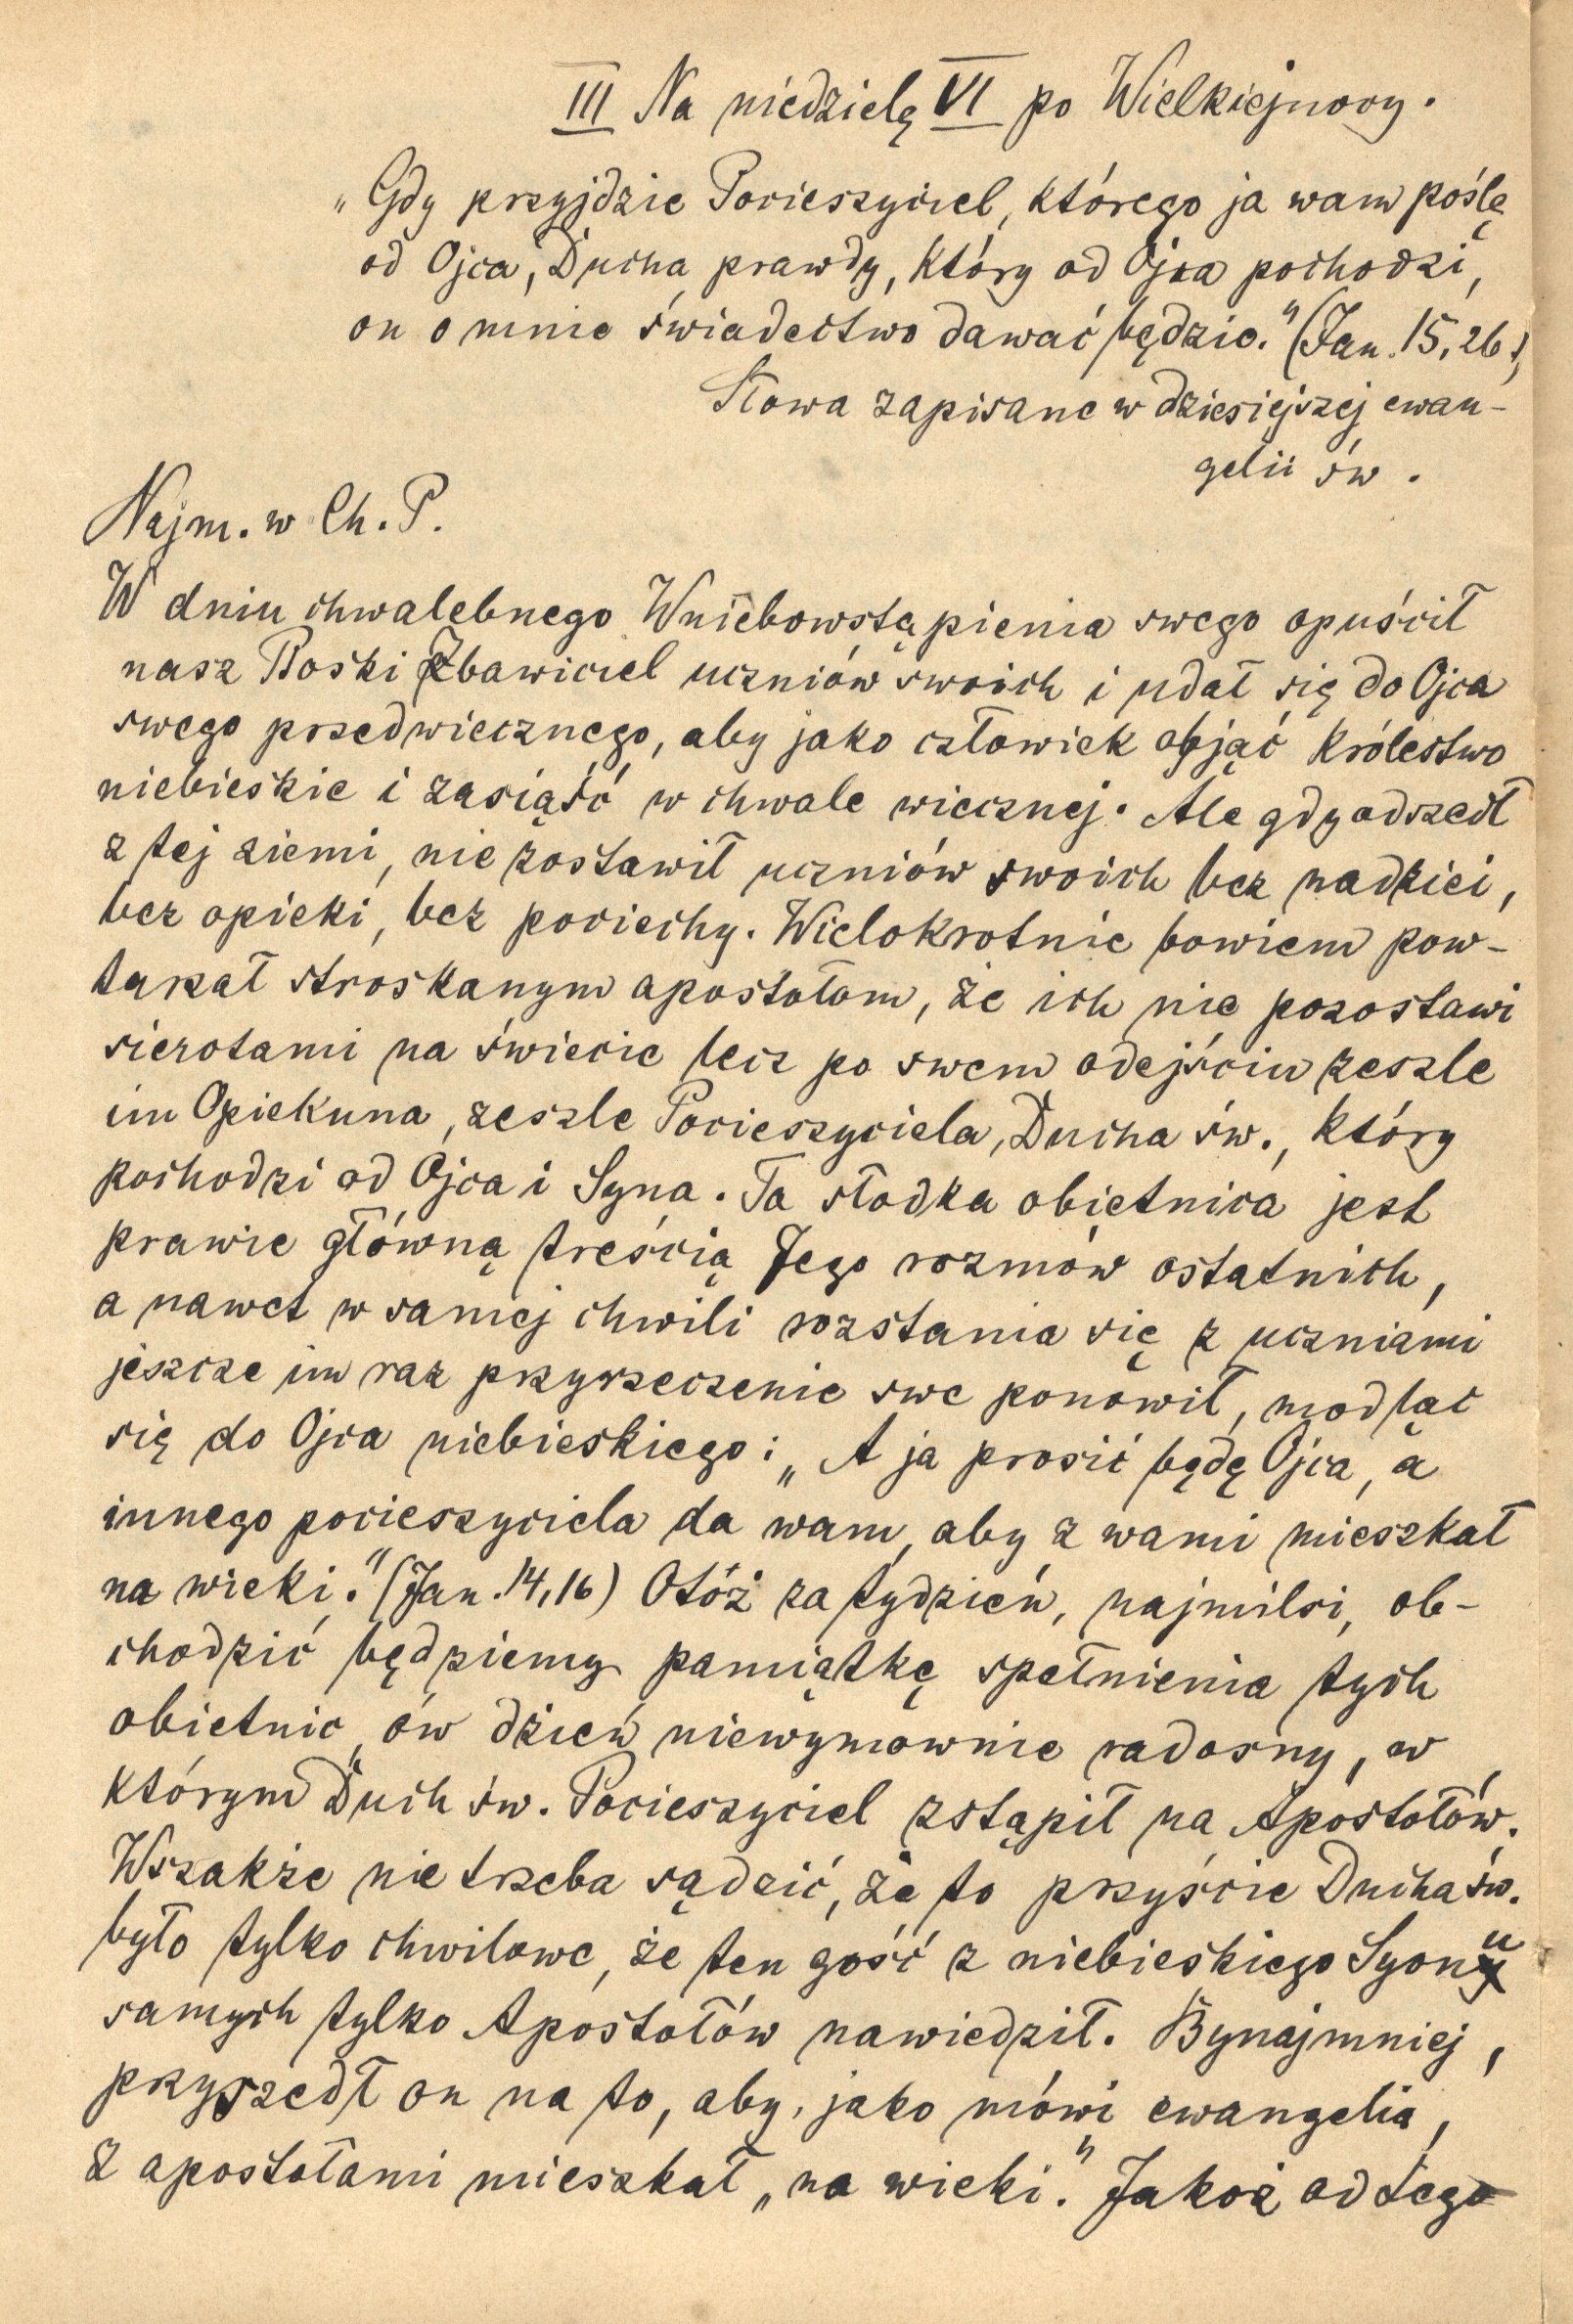 III Na niedzielę VI po Wielkiejnocy.
„Gdy przyjdzie Pocieszyciel, którego ja wam poślę
od Ojca, Ducha prawdy, który od Ojca pochodzi,
on o mnie świadectwo dawać będzie." (Jan. 15, 26.)
Słowa zapisane w dzisiejszej ewan-
gelii św.
Najm. w Ch. P.
W dniu chwalebnego Wniebowstąpienia swego opuścił
nasz Boski Zbawiciel uczniów swoich i udał się do Ojca
swego przedwiecznego, aby jako człowiek objąć królestwo
niebieskie i zasiąść w chwale wiecznej. Ale gdy odszedł
z tej ziemi, nie zostawił uczniów swoich bez nadziei,
bez opieki, bez pociechy. Wielokrotnie bowiem pow-
tarzał stroskanym apostołom, że ich nie pozostawi
sierotami na świecie lecz po swem odejściu ześle
im Opiekuna, ześle Pocieszyciela, Ducha św., który
pochodzi od Ojca i Syna. Ta słodka obietnica jest
prawie główną treścią Jego rozmów ostatnich,
a nawet w samej chwili rozstania się z uczniami
jeszcze im raz przyrzeczenie swe ponowił, modląc
się do Ojca niebieskiego: „A ja prosić będę Ojca, a
innego pocieszyciela da wam, aby z wami mieszkał
na wieki." (Jan. 14, 16) Otóż za tydzień, najmilsi, ob-
chodzić będziemy pamiątkę spełnienia tych
obietnic, ów dzień niewymownie radosny, w
którym Duch św. Pocieszyciel zstąpił na Apostołów.
Wszakże nie trzeba sądzić, że to przyście Ducha św.
było tylko chwilowe, że ten gość z niebieskiego Syonu
samych tylko Apostołów nawiedził. Bynajmniej,
przyszedł on na to, aby, jako mówi ewangelia,
z apostołami mieszkał „na wieki." Jakoż od tego